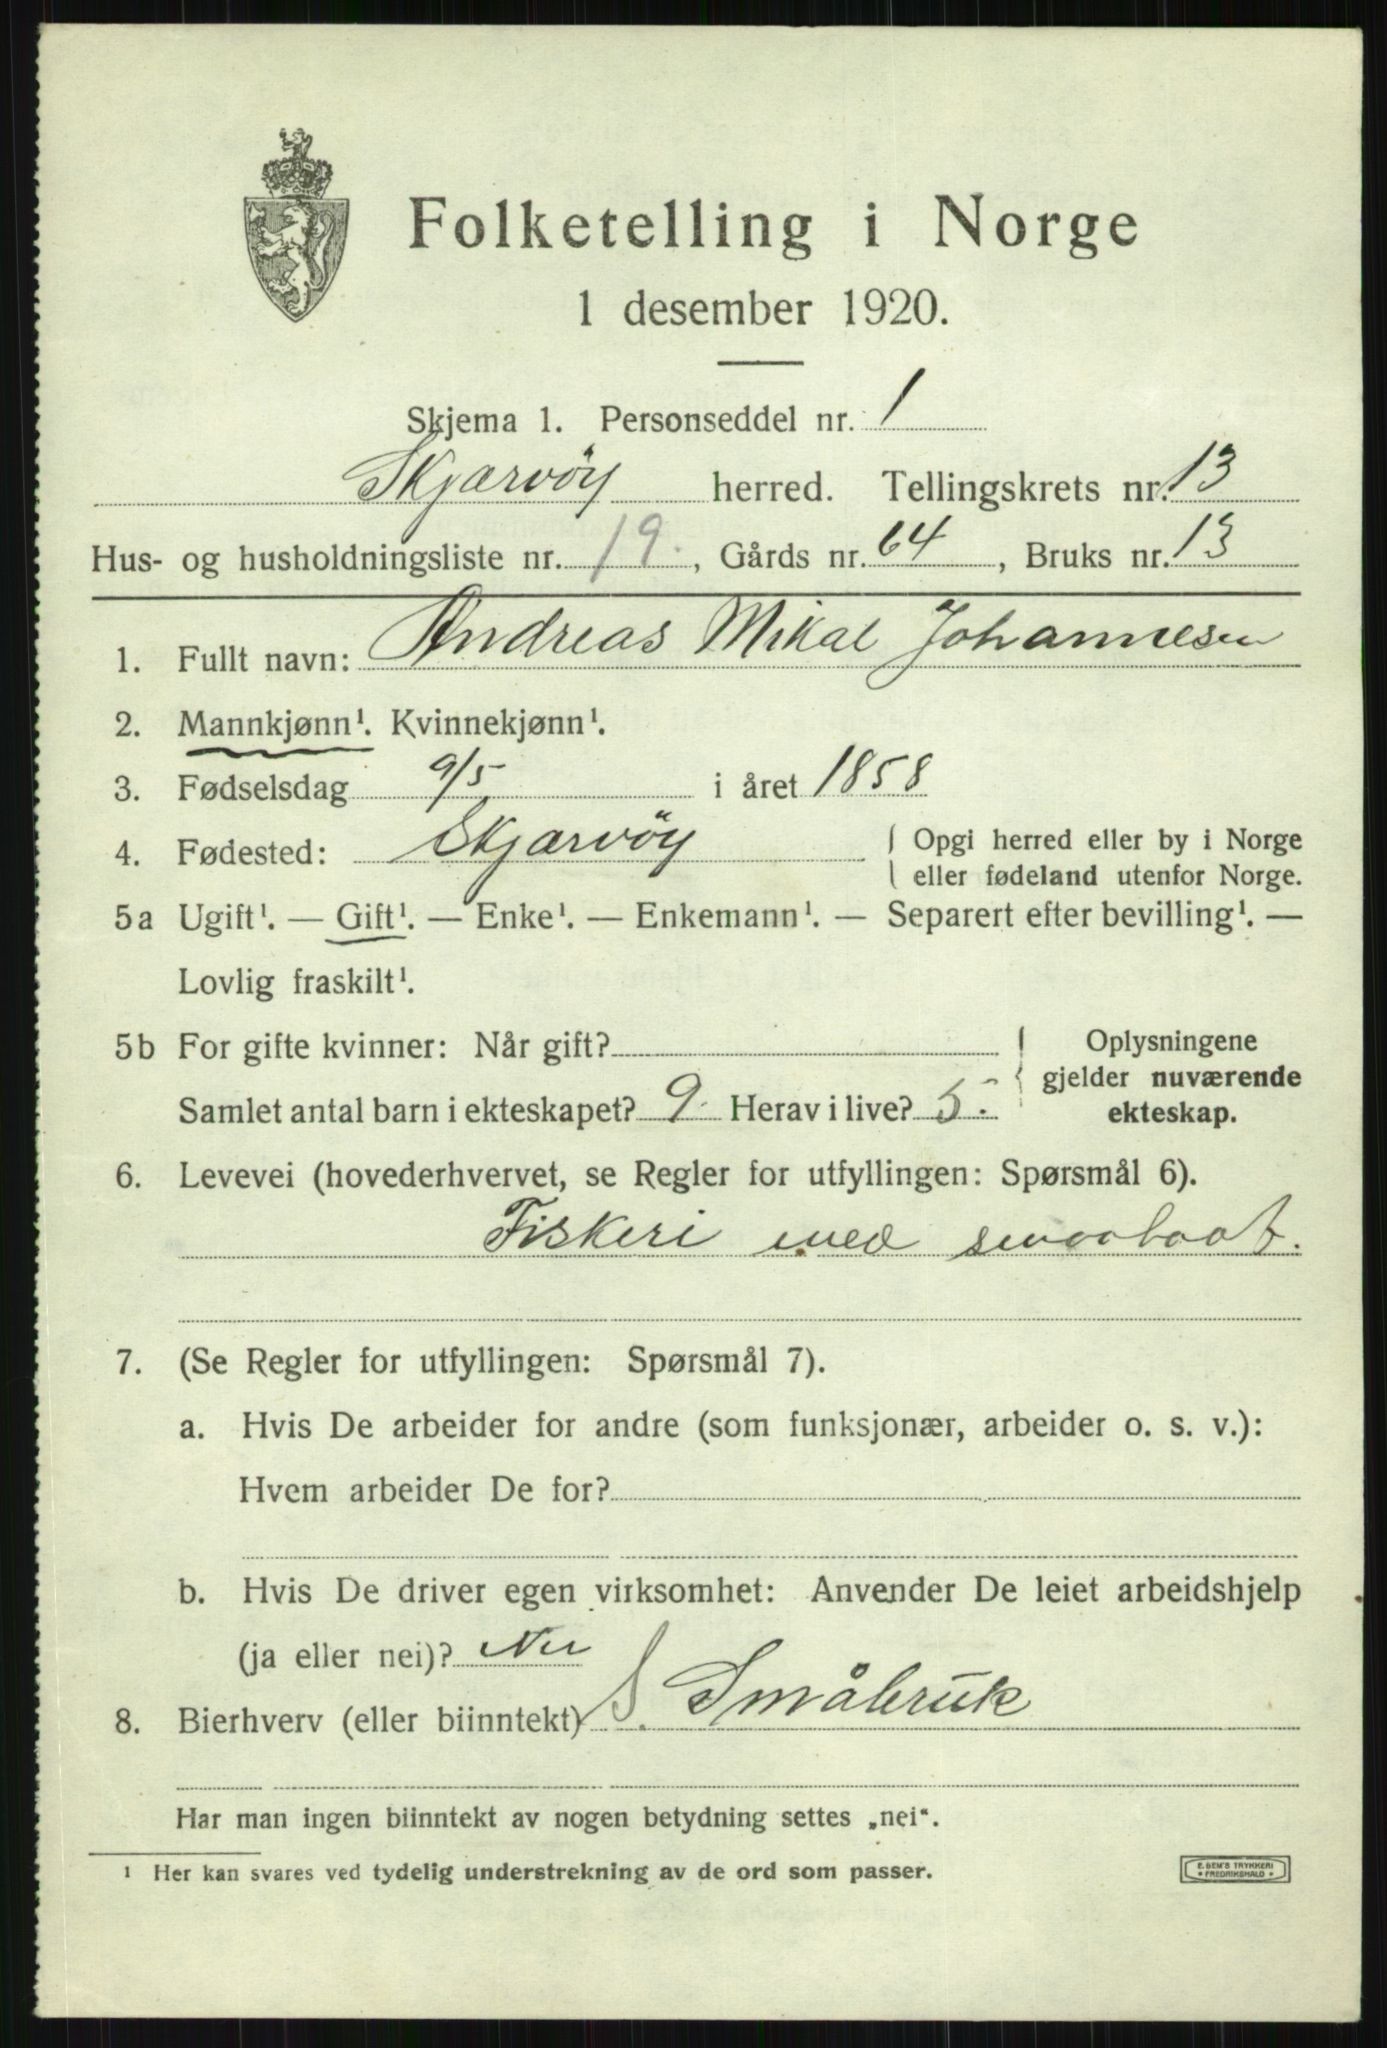 Folketelling i Norge
1 desember 1920.
Skjema 1. Personseddel nr. 1
Skjærvöy herred. Tellingskrets nr. 13
Hus- og husholdningsliste nr. 19. , Gårds nr. 64 , Bruks nr. 13
1. Fullt navn: Andreas Mikal Johannesen
2. Mannkjønn¹. Kvinnekjønn¹.
3. Fødselsdag 9/5 i året 1858
4. Fødested: Skjærvöy { Opgi herred eller by i Norge
eller fødeland utenfor Norge.
5a Ugift¹. — Gift¹. — Enke¹. — Enkemann¹. — Separert efter bevilling¹. —
Lovlig fraskilt¹.
5b For gifte kvinner: Når gift?
Samlet antal barn i ekteskapet? 9. Herav i live? 5.
Oplysningene
gjelder nuværende
ekteskap.
6. Levevei (hovederhvervet, se Regler for utfyllingen: Spørsmål 6).
Fiskeri med smaabaat.
7. (Se Regler for utfyllingen: Spørsmål 7).
a. Hvis De arbeider for andre (som funksjonær, arbeider o. s. v.):
Hvem arbeider De for?
b. Hvis De driver egen virksomhet: Anvender De leiet arbeidshjelp
(ja eller nei)? Nei
8. Bierhverv (eller biinntekt) S. Småbruk
Har man ingen biinntekt av nogen betydning settes „nei“.
¹ Her kan svares ved tydelig understrekning av de ord som passer.
E. SEM'S TRYKKERI
• FREDRIKSHALD •